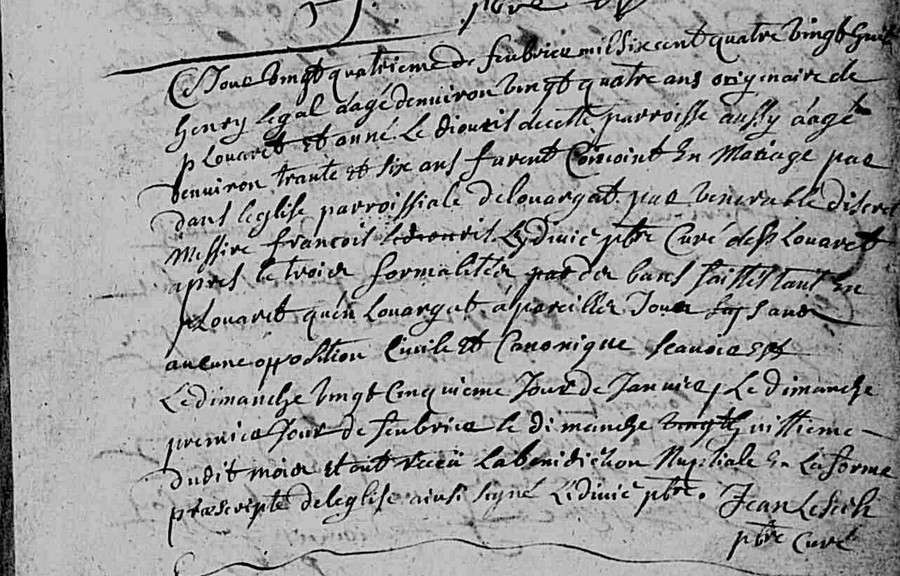 ptre
Ce Jour vingt quatrieme de feubvrier mil six cent quatre vingt huit
henry legal aâgé denuiron vingt quatre ans originaire de
plouaret et anne Le diouris de cette parroisse aussy aâgé
denuiron trante et six ans furent Conioint En Mariage par
dans leglise parroissiale delouargat par venerable discret
Messire francois lediouris Lydivic ptre Curé de plouaret
apres le trois formalites par des bans faittes tant En
plouaret qu'en Louargat à pareilles Jour sans
aucune opposition Ciuile et Canonique scauoir est
Le dimanche vingt Cinquieme Jour de Januier Le dimanche
premier Jour de feubrier le dimanche vingth huittieme
dudit mois et ont receu La benediction Nuptiale En La forme
præscripte de leglise ainsi signé Lidivic ptre. Jean
ptre Curé